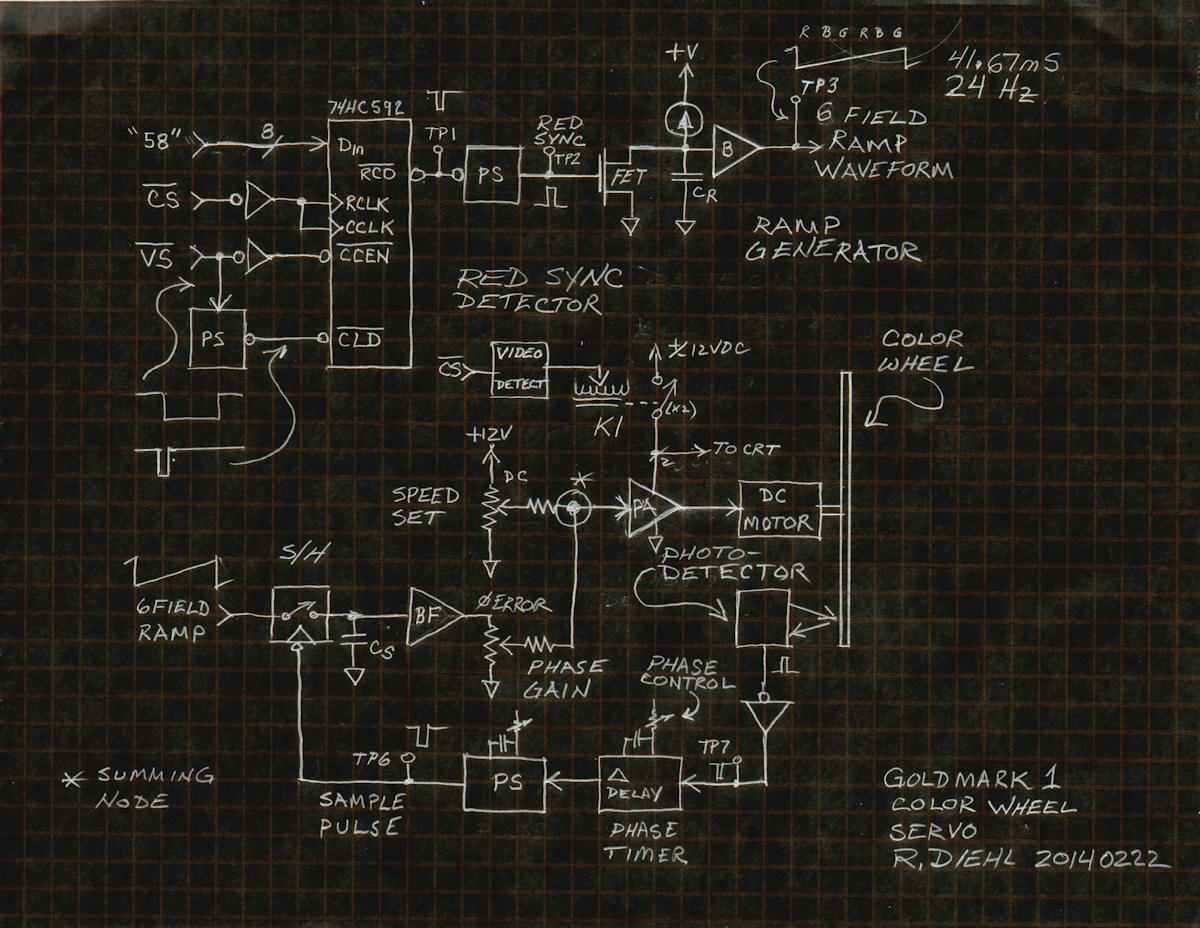 R B G R B G
41.67mS
24 Hz
+V
TP3
6 FIELD
RAMP
WAVEFORM
74HC592
"58"
8
Din
TP1
RED
SYNC
TP2
B
RCO
PS
FET
CR
CS
RCLK
CCLK
VS
CCEN
RAMP
GENERATOR
RED SYNC
DETECTOR
PS
CLD
COLOR
WHEEL
CS
VIDEO
DETECT
±12VDC
(x2)
K1
+12V
TO CRT
2
DC
*
SPEED
SET
PA
DC
MOTOR
S/H
PHOTO-
DETECTOR
6 FIELD
RAMP
BF
ØERROR
CS
PHASE
GAIN
PHASE
CONTROL
TP6
TP7
PS
Δ
DELAY
* SUMMING
NODE
SAMPLE
PULSE
PHASE
TIMER
GOLDMARK 1
COLOR WHEEL
SERVO
R. DIEHL 20140222